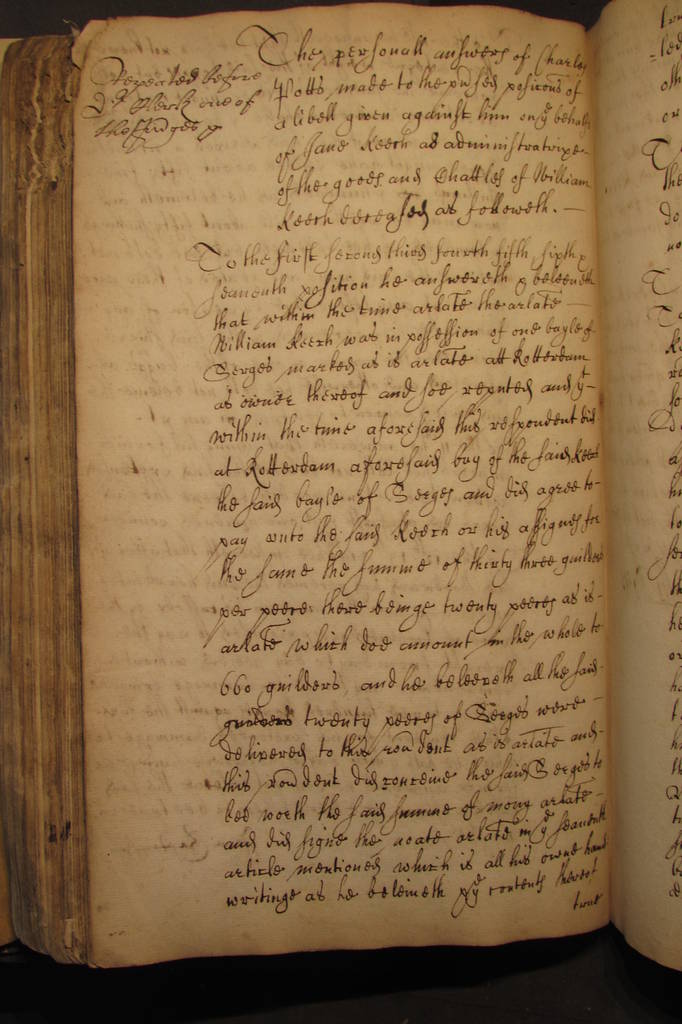 Repeated before
Dr Clerk one of
the Judges
The personall answers of Charles
Potts made to the prsed posicons of
a libell given against him on ye behalfe
of Jane Keech as administratrixe
of the goods and Chattles of William
Keech deceased as followeth. —
To the first second third fourth fifth sixth &
seaventh position he answereth & beleeveth
that within the time arlate the arlate —
William Keech was in possession of one bayle of
Serges marked as is arlate att Rotterdam
as owner thereof and soe reputed and yt —
within the time aforesaid this respondent did
at Rotterdam aforesaid buy of the said Keech
the said bayle of Serges and did agree to
pay unto the said Keech or his assignes for
the same the summe of thirty three guilders
per peece there beinge twenty peeces as is —
arlate which doe amount in the whole to
660 guilders, and he beleeveth all the said —
guilders twenty peeces of Serges were —
delivered to this rondent as is arlate and —
this rondent did conceive the said Serges to
bee worth the said summe of mony arlate —
and did signe the noate arlate in ye seaventh
article mentioned which is all his owne hand
writinge as he beleiveth & ye contents thereof
true